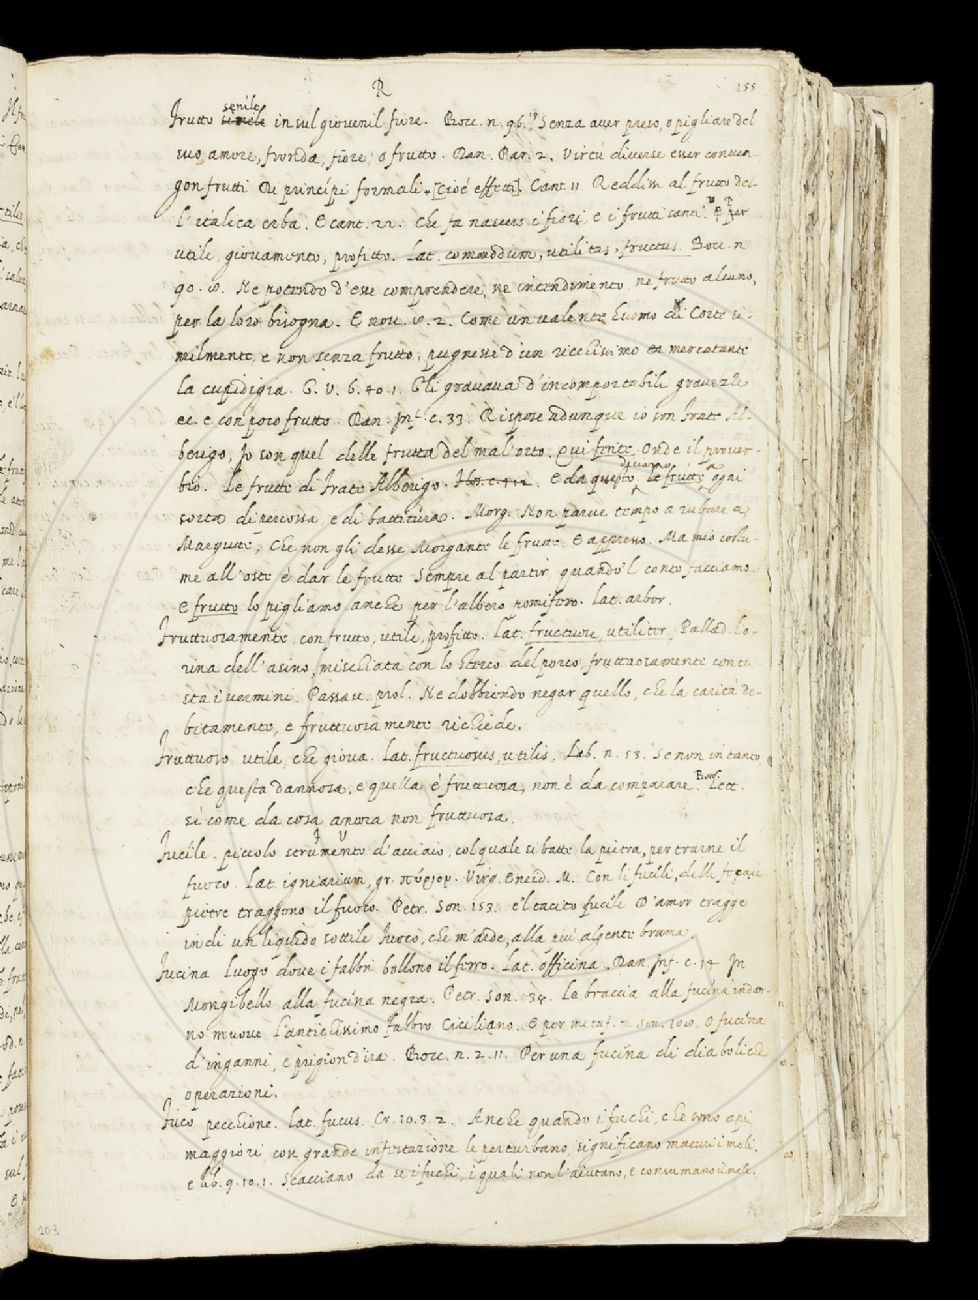 R 155
senile
frutto simile in sul giovenil fiore. Bocc. n. 96. 17. Senza aver preso, o pigliare del
suo amore, fronda, fiore, o frutto. Dan. Par. 2. Virtù diverse esser conven-
gon frutti Di principi formali. [cioè effetti]. Cant. 11. Reddissi al frutto del-
l'italica erba. E cant. 22. Che fa nascere i fiori e i frutti santi. Per
utile, giovamento, profitto. Lat. commodum, utilitas, fructus. Bocc. n.
90. Ne potendo d'esse comprendere, ne intendimento, ne frutto alcuno,
per la loro bisogna. E nov. 2. Come un valente huomo di Corte si-
milmente, e non senza frutto, pugnesse d'un ricchissimo mercatante
la cupidigia. G. V. 6. 40. 1. Gli gravava d'incomportabili gravezze
ec. e con poco frutto. Dan. Inf. c. 33. Rispose adunque io son frate Al-
berigo, Io son quel delle frutta del mal'orto. Qui finite, Onde il prover-
bio. Le frutte di frate Alberigo. E da questo, le frutte ogni
sorta di percossa, e di battitura. Morg. Non parve tempo a rubare a
Margutte, Che non gli desse Morgante le frutte. E appresso. Ma mio costu-
me all'oste è dar le frutte Sempre al partir, quando'l conto facciamo.
E frutto lo pigliamo anche per l'albero pomifero. Lat. arbor.
Fruttuosamente, con frutto, utile, profitto. Lat. fructuose, utiliter. Pallad. L'o-
rina dell'asino, mischiata con lo sterco del porco, fruttuosamente contra
sta i vermini. Passav. prol. Ne dobbiendo negar quello, che la carità de-
bitamente, e fruttuosamente richiede.
Fruttuoso utile, che giova. Lat. fructuosus, utilis. Lab. n. 53. Se non in tanto,
che questa dannosa, e quella è fruttuosa, non è da comparare. Bocc. Lett.
sì come da cosa ancora non fruttuosa.
Fucile. piccolo strumento d'acciaio, col quale si batte la pietra, per trarne il
fuoco. Lat. igniarium, gr. πύρειον. Virg. Eneid. M. Con li fucili, delle focaie
pietre traggono il fuoco. Petr. Son. 153. e'l tacito fucile D'amor tragge
indi un liquido sottile fuoco, che m'arde, alla più algente bruma.
Fucina Luogo dove i fabbri bollono il ferro. Lat. officina. Dan Inf. c. 14 In
Mongibello alla fucina negra. Petr. Son. 34. Le braccia alla fucina indar-
no muove L'antichissimo fabbro Ciciliano. E per metaf. Son. 108. O fucina
d'inganni, e prigion d'ira. Bocc. n. 2. 11. Per una fucina di diaboliche
operazioni.
Fuco pecchione. Lat. fucus. Cr. 10. 3. 2. Anche quando i fuchi, che sono api
maggiori, con grande infestazione le perturbano, significano maturi i meli.
e lib. 9. 10. 1. Scacciano da se i fuchi, i quali non l'aiutano, e consumano il mele.